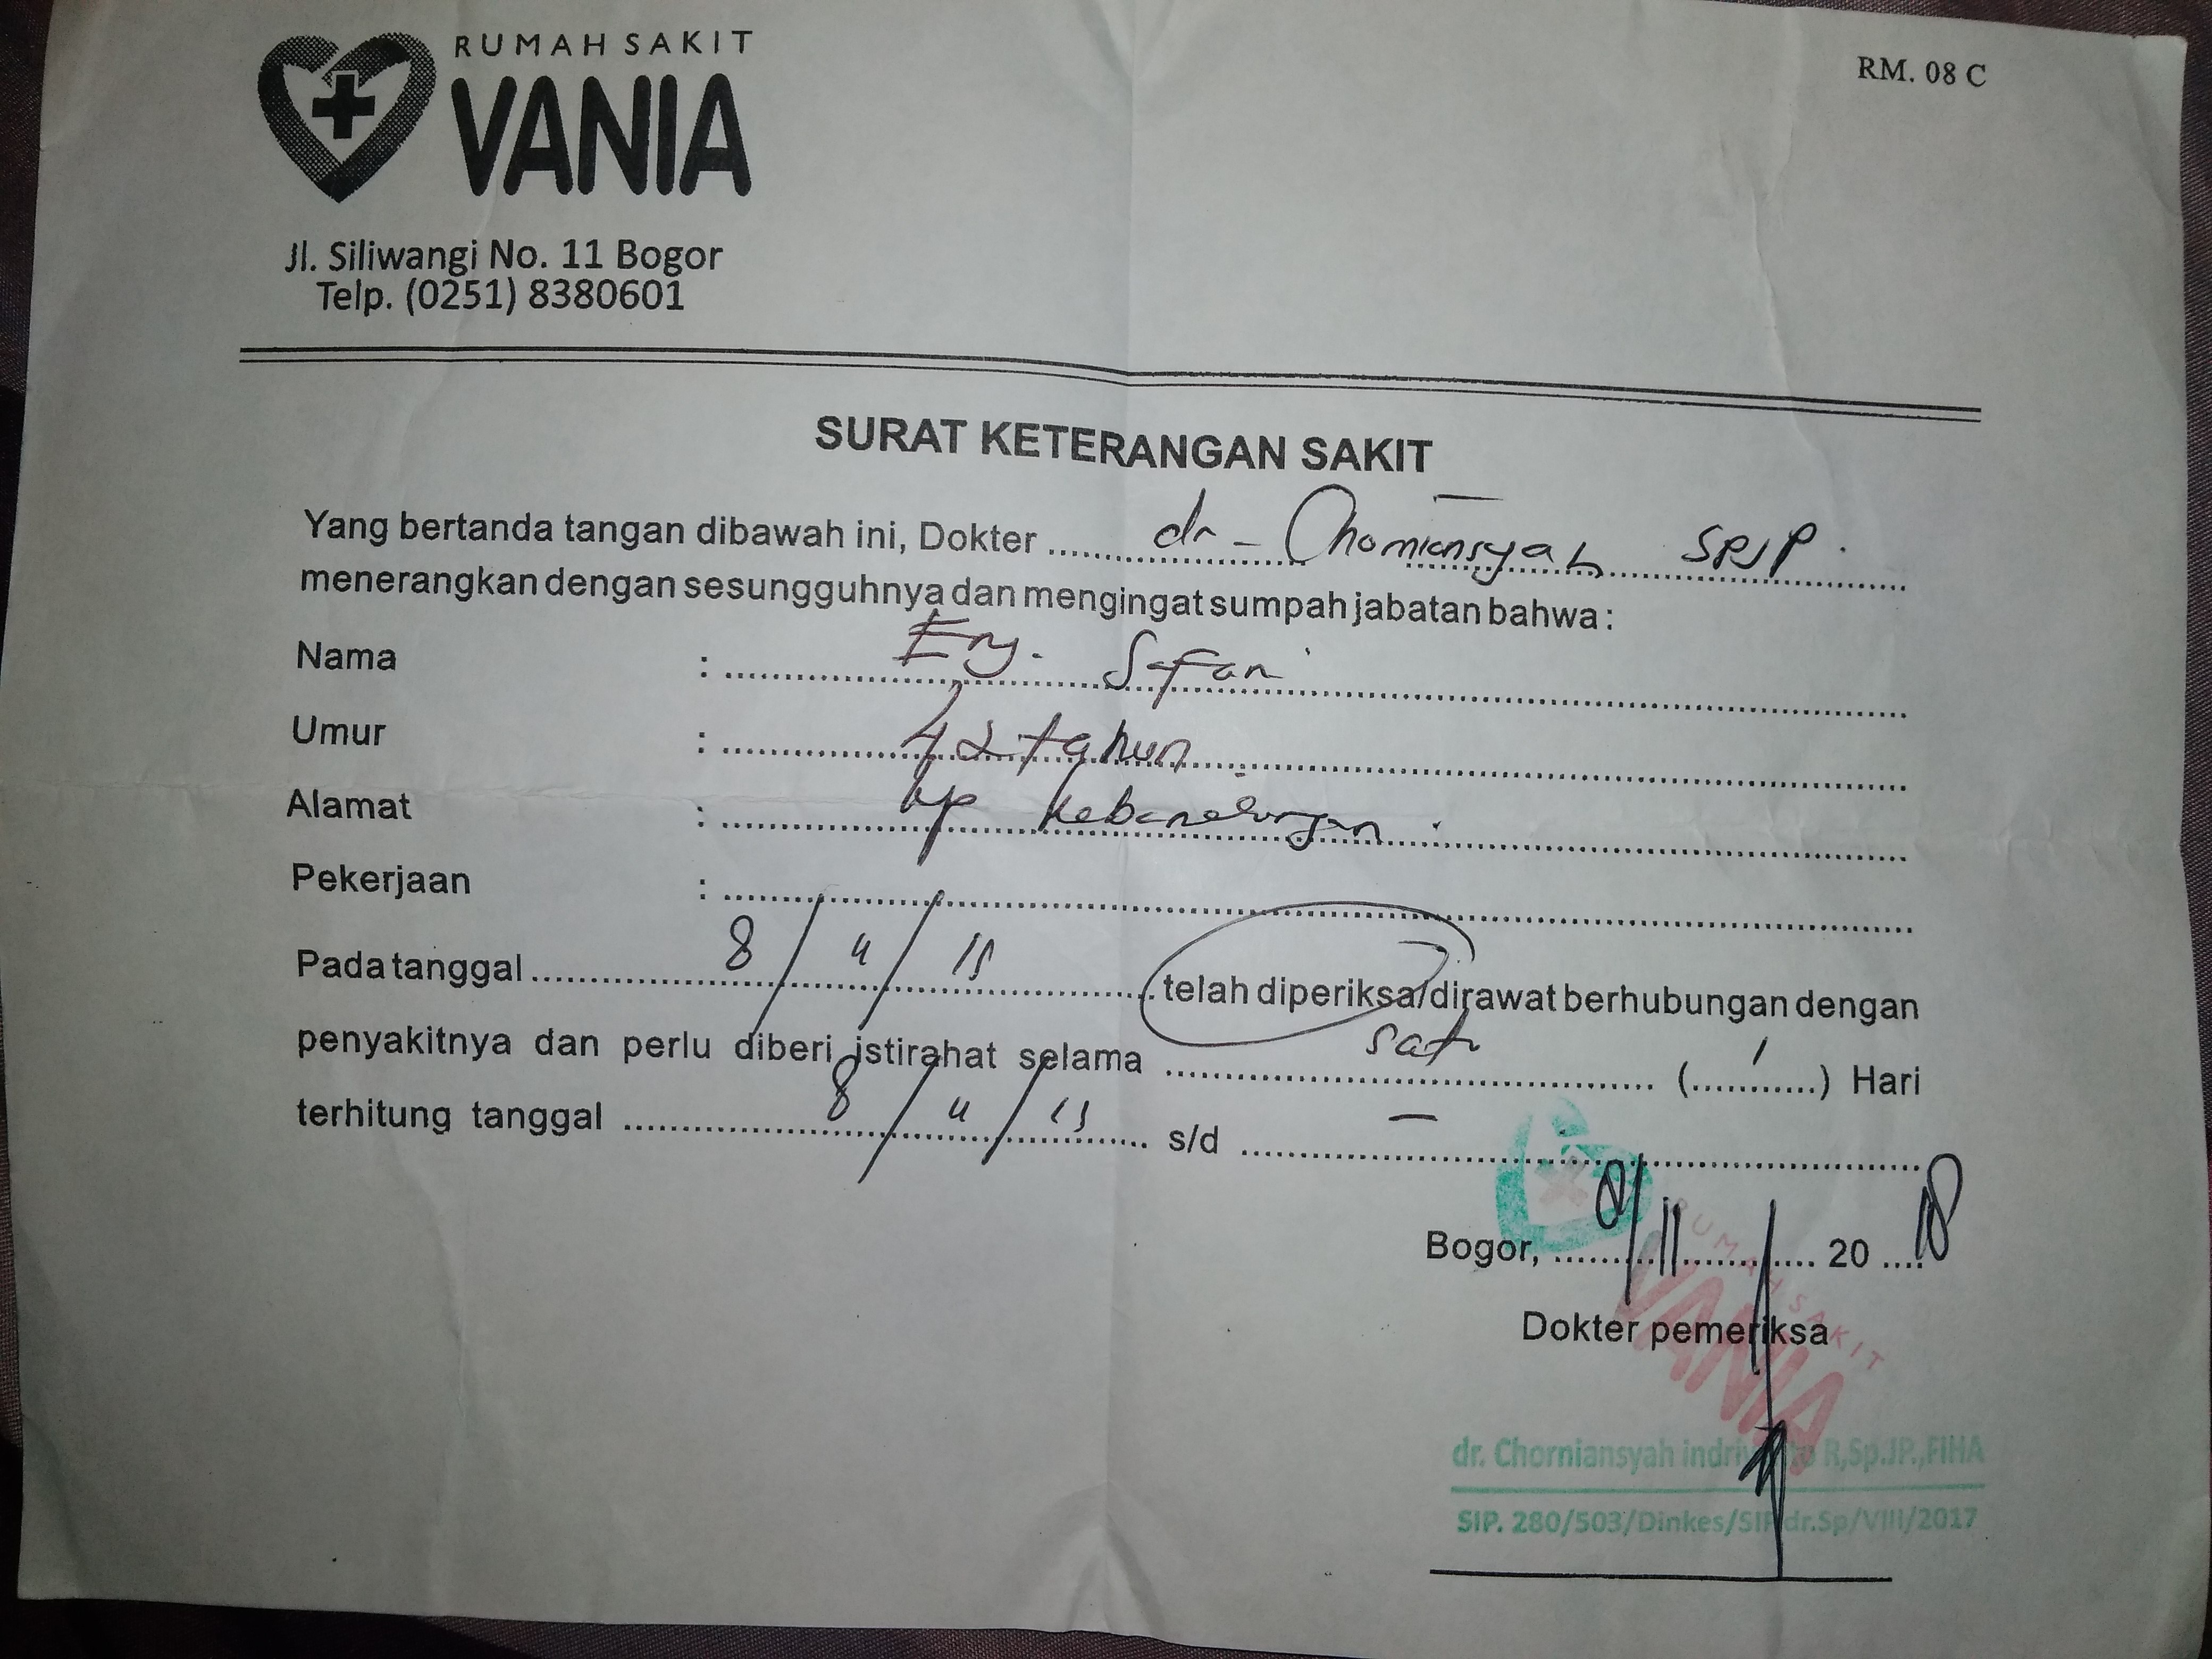 RUMAH SAKIT
VANIA
RM. 08 C
Jl. Siliwangi No. 11 Bogor
Telp. (0251) 8380601
SURAT KETERANGAN SAKIT
Yang bertanda tangan dibawah ini, Dokter dr - Chorniansyah SPJP.
menerangkan dengan sesungguhnya dan mengingat sumpah jabatan bahwa :
Nama : Safari
Umur : 42 tahun
Alamat : kp
Pekerjaan :
Pada tanggal 8 / 11 / 18 telah diperiksa/dirawat berhubungan dengan
penyakitnya dan perlu diberi istirahat selama satu ( 1 ) Hari
terhitung tanggal 8 / 11 / 18 s/d -
Bogor, 8/11 20 18
Dokter pemeriksa
RUMAH SAKIT
VANIA
dr. Chorniansyah R,Sp.JP.,FIHA
SIP. 280/503/Dinkes/SIP.dr.Sp/VIII/2017